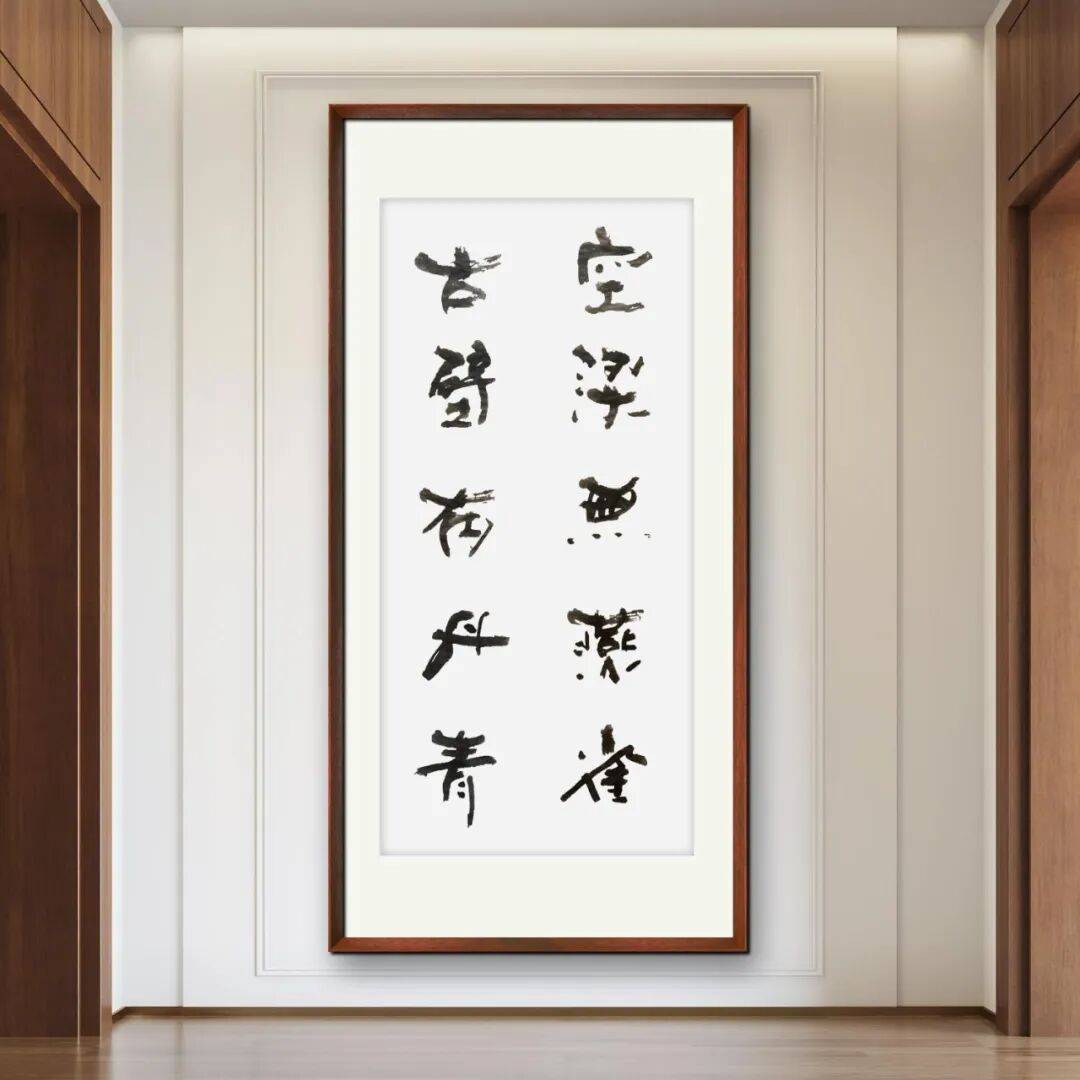 空梁無燕雀
古壁有丹青